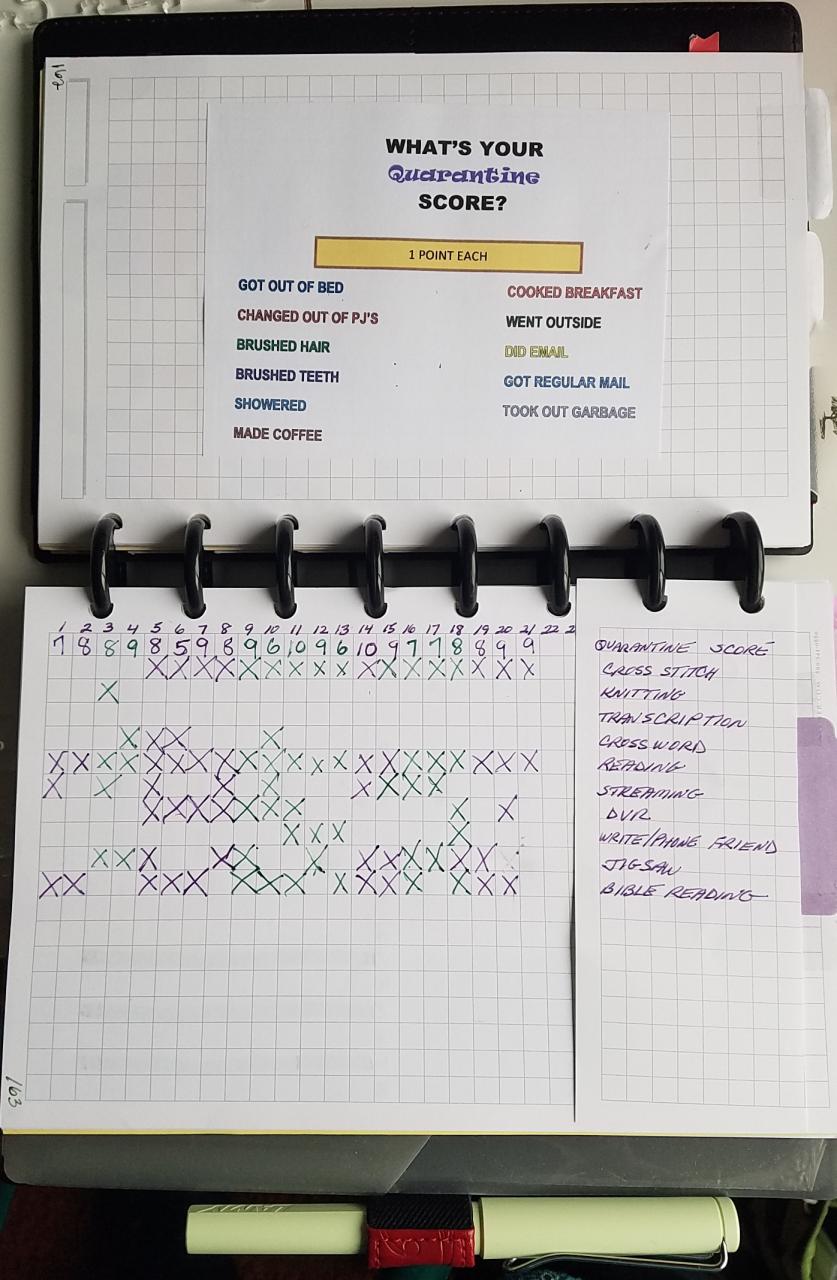 162
WHAT'S YOUR
Quarantine
SCORE?
1 POINT EACH
GOT OUT OF BED
CHANGED OUT OF PJ'S
BRUSHED HAIR
BRUSHED TEETH
SHOWERED
MADE COFFEE
COOKED BREAKFAST
WENT OUTSIDE
DID EMAIL
GOT REGULAR MAIL
TOOK OUT GARBAGE
1 2 3 4 5 6 7 8 9 10 11 12 13 14 15 16 17 18 19 20 21 22 2
7 8 8 9 8 5 9 8 9 6 10 9 6 10 9 7 7 8 8 9 9
X X X X X X X X X X X X X X X X X
X
X X X X
X X X X X X X X X X X X X X X X X X X X X
X X X X X X X X X
X X X X X X X X X
X X X X
X X X X X X X X X X X X
X X X X X X X X X X X X X X X
QUARANTINE SCORE
CROSS STITCH
KNITTING
TRANSCRIPTION
CROSSWORD
READING
STREAMING
DVR
WRITE/PHONE FRIEND
JIGSAW
BIBLE READING
163